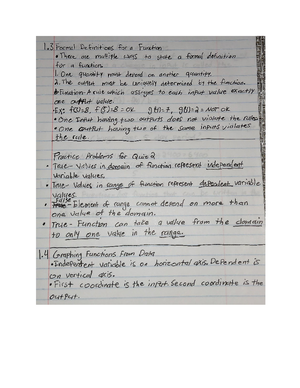 1.3 Formal Definitions for a Function
• There are multiple ways to state a formal definition
for a function.
1. One quantity must depend on another quantity.
2. The output must be uniquely determined by the function.
Function: A rule which assigns to each input value exactly
one output value.
Ex: f(3)=8, f(5)=8 = OK. g(4)=7, g(4)=2 = NOT OK
• One Input having two outputs does not violate the rules.
• One output having two of the same inputs violates
the rule.
Practice Problems for Quiz 2
• True - Values in domain of function represent independent
variable values.
• True - Values in range of function represent dependent variable
values.
False
• True - Element of range cannot depend on more than
one value of the domain.
• True - Function can take a value from the domain
to only one value in the range.
1.4 Graphing Functions From Data
• Independent variable is on horizontal axis. Dependent is
on vertical axis.
• First coordinate is the input. Second coordinate is the
output.